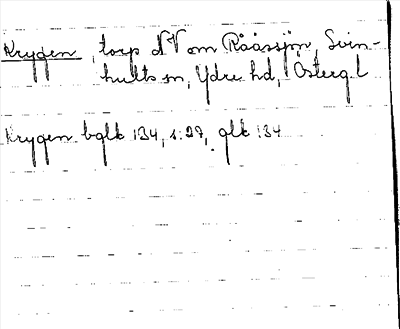 Krygen, torp NV om Rååssjön, Svin-
hults sn, Ydre hd, Östergl
Krygen bglk 134, 1:27, glk 134